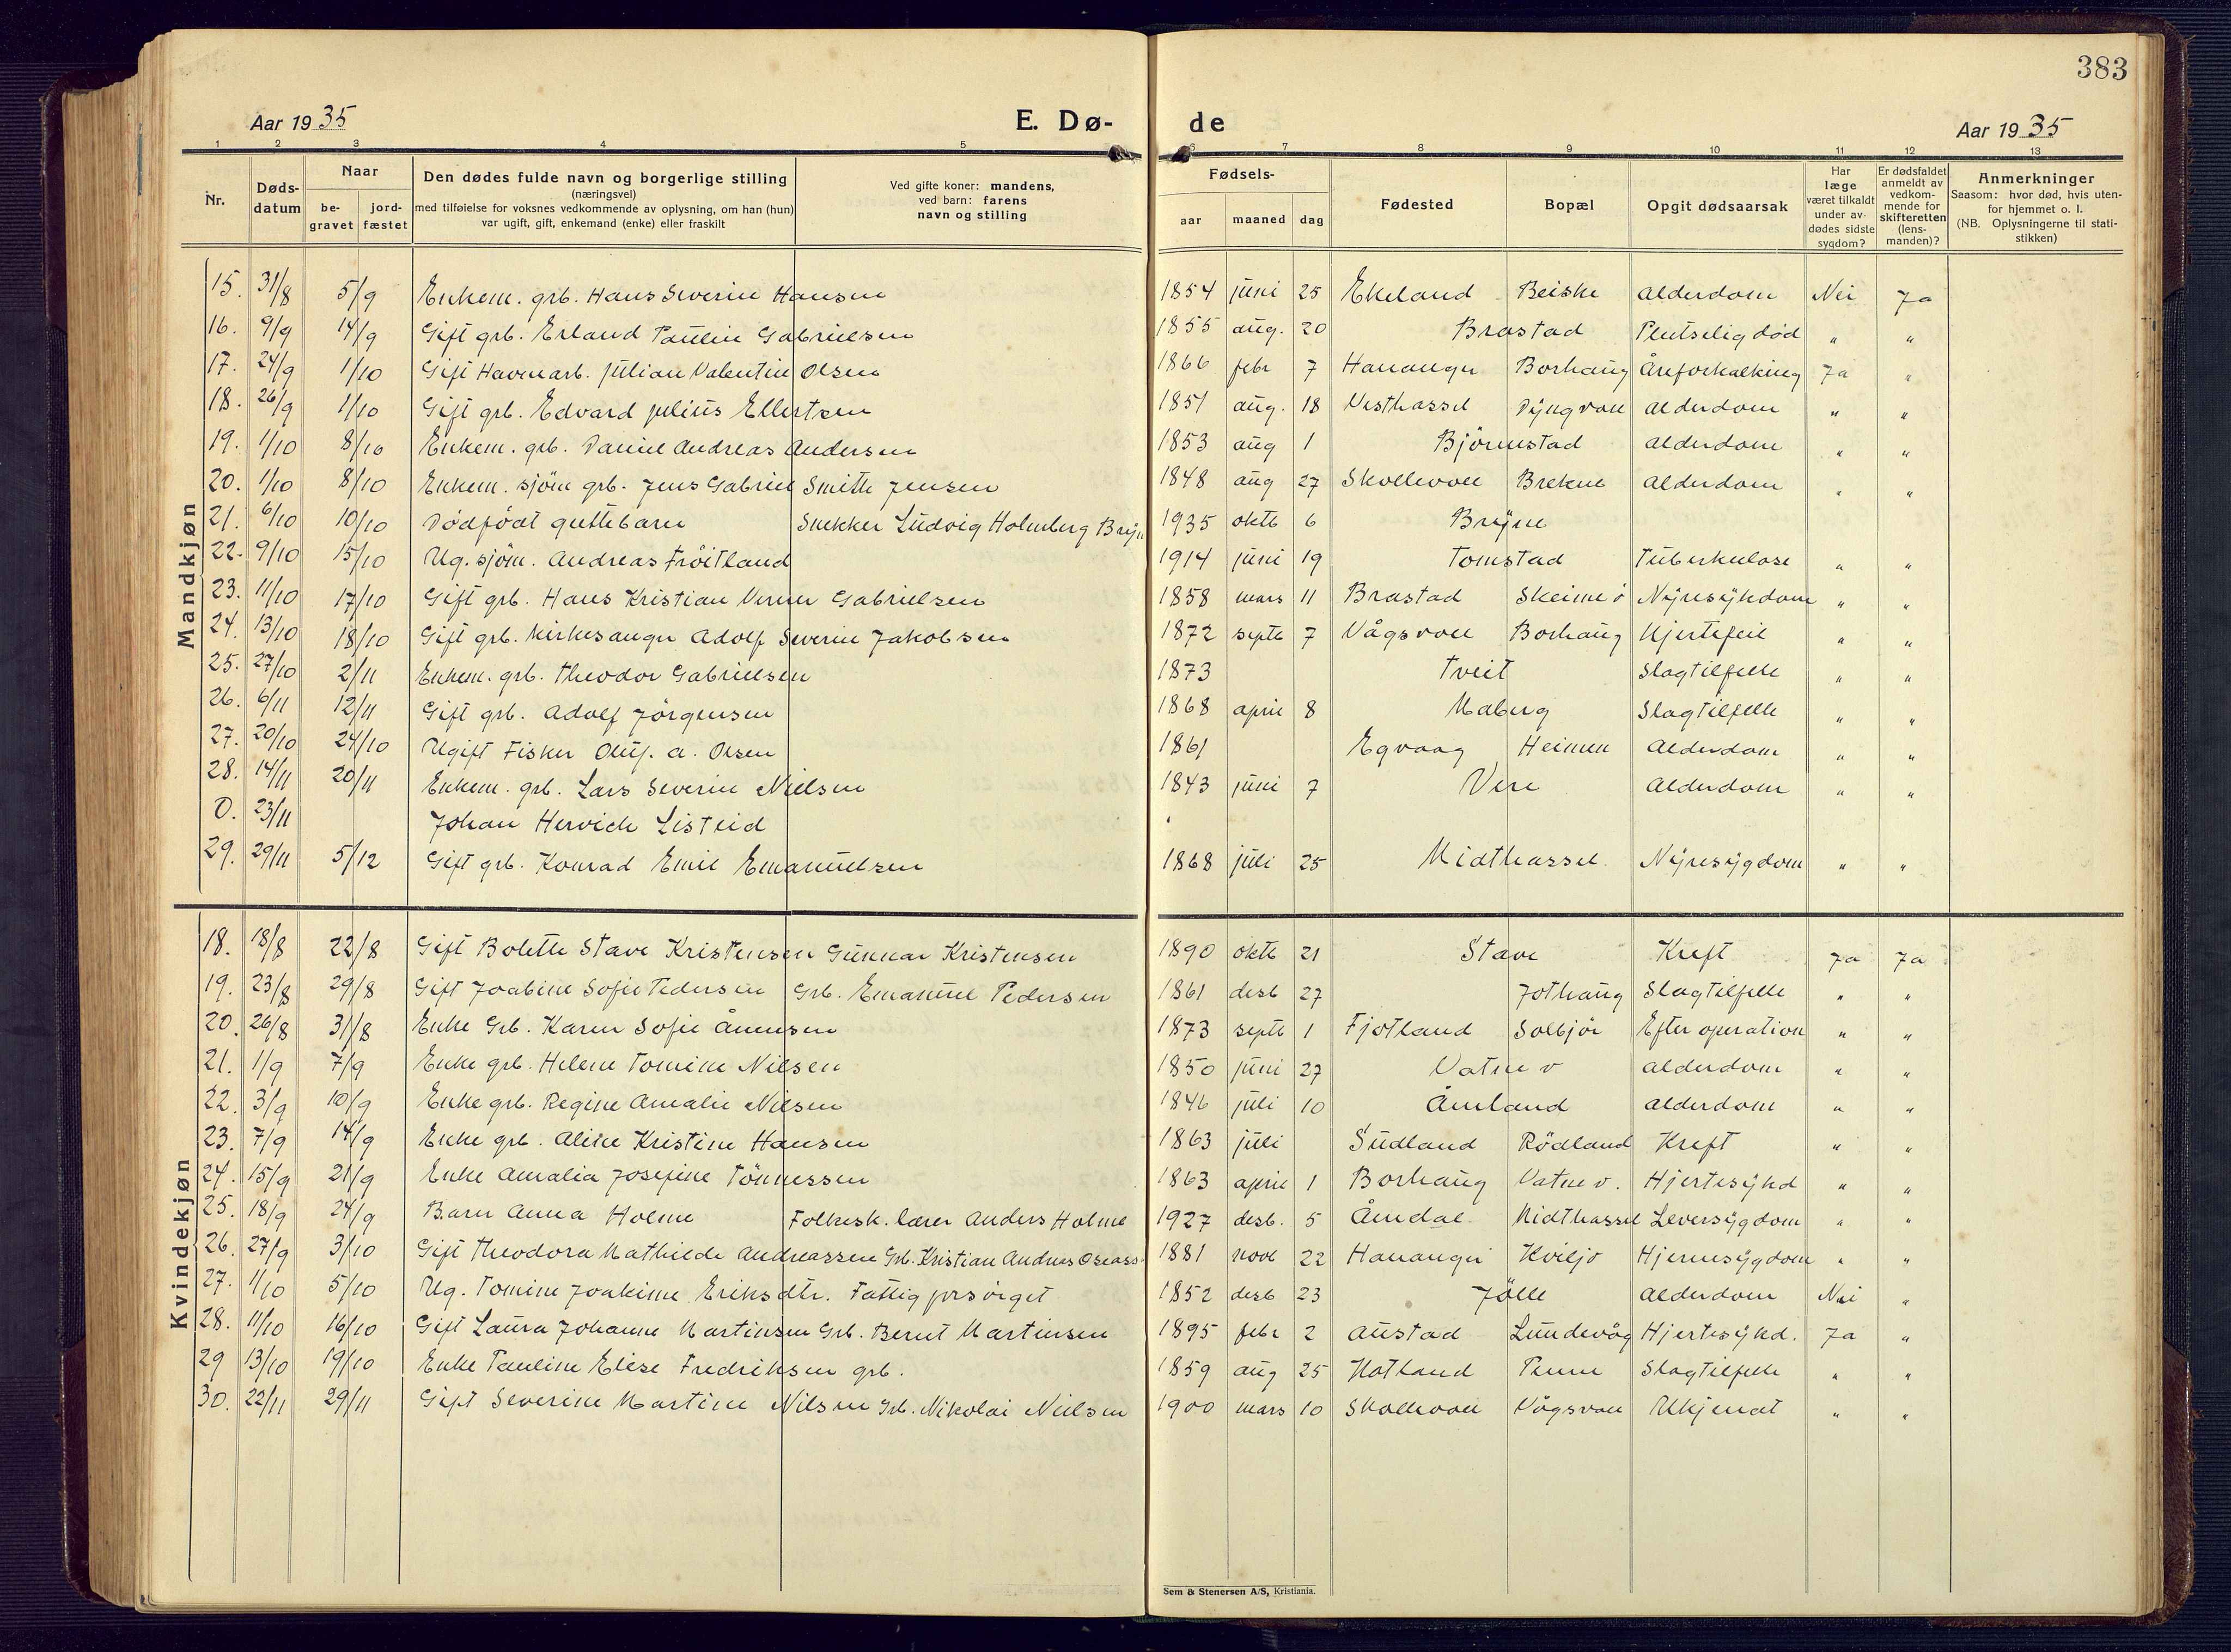 383
Aar 1935 E. Dø- de Aar 1935
1 2 3 4 5 6 7 8 9 10 11 12 13
Nr. Døds-datum Naar be-gravet jord-fæstet Den dødes fulde navn og borgerlige stilling (næringsvei) med tilføielse for voksnes vedkommende av oplysning, om han (hun) var ugift, gift, enkemand (enke) eller fraskilt Ved gifte koner: mandens, ved barn: farens navn og stilling Fødsels- aar maaned dag Fødested Bopæl Opgit dødsaarsak Har læge været tilkaldt under av-dødes sidste sygdom? Er dødsfaldet anmeldt av vedkom-mende for skifteretten (lens-manden)? Anmerkninger Saasom: hvor død, hvis uten-for hjemmet o. l. (NB. Oplysningerne til stati-stikken)
Mandkjøn
15. 31/8 5/9 Enkem. grb. Hans Severin Hansen 1854 juni 25 Ekeland Beiske Alderdom Nei Ja
16. 9/9 14/9 Gift grb. Erland Paulin Gabrielsen 1855 aug. 20 Brastad Plutselig død " "
17. 24/9 1/10 Gift Havnarb. Julian Valentin Olsen 1866 febr 7 Hananger Borhaug Åreforkalking Ja "
18. 26/9 1/10 Gift grb. Edvard Julius Ellertsen 1851 aug. 18 Vesthassel Dyngvoll Alderdom " "
19. 1/10 8/10 Enkem. grb. Daniel Andreas Andersen 1853 aug 1 Björnestad Alderdom " "
20. 1/10 8/10 Enkem. sjöm grb. Jens Gabriel Smith Jensen 1848 aug 27 Skollevoll Brekne Alderdom " "
21. 6/10 10/10 Dödfödt guttebarn Snekker Ludvig Holmberg Bryn 1935 oktb 6 Bryne
22. 9/10 15/10 Ug. sjöm. Andreas Fröitland 1914 juni 19 Tomstad Tuberkulose " "
23. 11/10 17/10 Gift grb. Hans Kristian Verner Gabrielsen 1858 mars 11 Brastad Skeime ö Nyresykdom " "
24. 13/10 18/10 Gift grb. kirkesanger Adolf Severin Jakobsen 1872 septb 7 Vågsvoll Borhaug Hjertefeil " "
25. 27/10 2/11 Enkem. grb. Theodor Gabrielsen 1873 Tveit Slagtilfelle " "
26. 6/11 12/11 Gift grb. Adolf Jörgensen 1868 april 8 Maberg Slagtilfelle " "
27. 20/10 24/10 Ugift Fisker Oluf. A. Olsen 1861 Egvaag Heimen Alderdom " "
28. 14/11 20/11 Enkem. grb. Lars Severin Nielsen 1843 juni 7 Vere Alderdom " "
0. 23/11 Johan Hervich Listeid "
29. 29/11 5/12 Gift grb. Konrad Emil Emanuelsen 1868 juli 25 Midthassel Nyresygdom " "
Kvindekjøn
18. 18/8 22/8 Gift Bolette Stave Kristensen Gunnar Kristensen 1890 oktb 21 Stave Kreft Ja Ja
19. 23/8 29/8 Gift Joabine Sofie Pedersen Grb. Emanuel Pedersen 1861 desb 27 Jothaug Slagtilfelle " "
20. 26/8 31/8 Enke Grb. Karen Sofie Ånensen 1873 septb 1 Fjotland Solbjör Efter operation " "
21. 1/9 7/9 Enke grb. Helene Tomine Nilsen 1850 juni 27 Vatne v Alderdom " "
22. 3/9 10/9 Enke grb. Regine Amalie Nilsen 1846 juli 10 Åmland Alderdom " "
23. 7/9 14/9 Enke grb. Aline Kristine Hansen 1863 juli Sudland Rödland Kreft " "
24. 15/9 21/9 Enke Amalia Josefine Tönnessen 1863 april 1 Borhaug Vatne v. Hjertesykd " "
25. 18/9 24/9 Barn Anna Holme Folkesk. lærer Anders Holme 1927 desb. 5 Åmdal Midthassel Leversygdom " "
26. 27/9 3/10 Gift Theodora Mathilde Andreassen Grb. Kristian Andreas Oseass 1881 novb 22 Hananger Kviljo Hjernesygdom " "
27. 1/10 5/10 Ug. Tomine Joakime Eriksdtr. Fattigforsörget 1852 desb 23 Jölle Alderdom Nei "
28. 11/10 16/10 Gift Laura Johanne Martinsen Grb. Bernt Martinsen 1895 febr 2 Austad Lundevåg Hjertesykd. Ja "
29 13/10 19/10 Enke Pauline Elise Fredriksen grb. 1859 aug 25 Hotland Penne Slagtilfelle " "
30. 22/11 29/11 Gift Severine Martine Nilsen Grb. Nikolai Nielsen 1900 mars 10 Skollevoll Vågsvoll Ukjendt " "
Sem & Stenersen A/S, Kristiania.